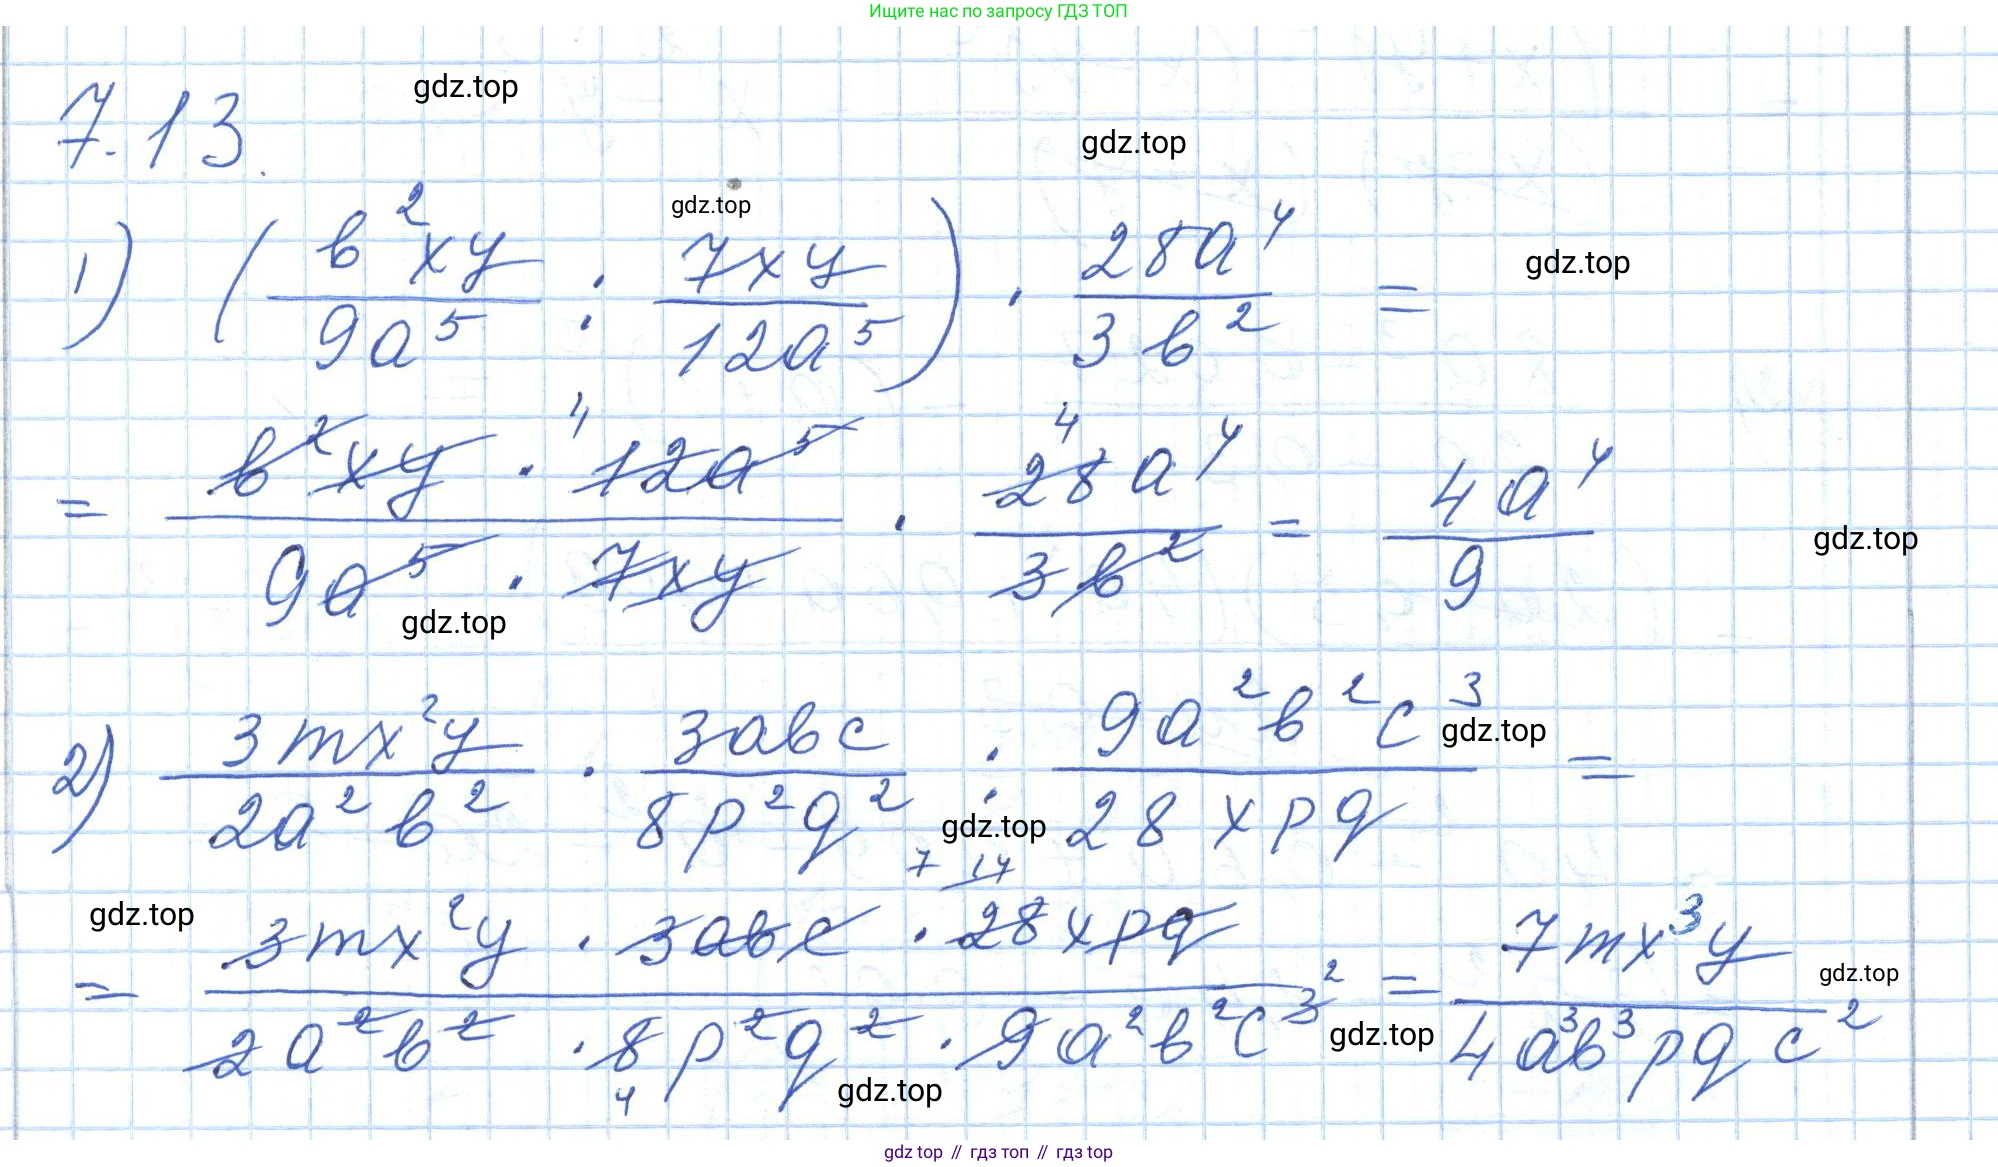 Ищите нас по запросу ГДЗ ТОП
gdz.top
7.13.
gdz.top
gdz.top
1) (в²xy / 9a⁵ : 7xy / 12a⁵) · 28a⁴ / 3в² =
gdz.top
4 4
= в²xy · 12a⁵ / 9a⁵ · 7xy · 28a⁴ / 3в² = 4a⁴ / 9
gdz.top
gdz.top
2) 3mx²y / 2a²в² · 3aвc / 8p²q² : 9a²в²c³ / 28xpq =
gdz.top
gdz.top
7 14
gdz.top
= 3mx²y · 3aвc · 28xpq / 2a²в² · 8p²q² · 9a²в²c³ ² = 7mx³y / 4a³в³pqc²
gdz.top
gdz.top
4
gdz.top
gdz top // гдз топ // гдз top